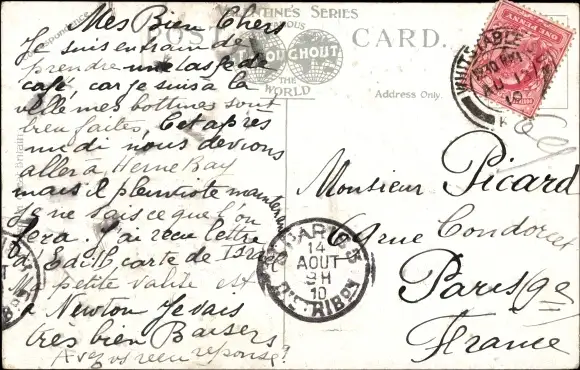 Mes Bien Chers
Je suis en train de
prendre une tasse de
café, car je suis à la
ville mes bottines sont
bien faites, Cet après
midi nous devrions
aller à Herne Bay
mais il pleut vite maintenant
Je ne sais ce que l'on
fera. J'ai reçu lettre
d'Edith carte de Israel
Ma petite valise est
à Newton Je vais
très bien Baisers
Avez vs reçu reponse?
VALENTINE'S SERIES
FAMOUS
THROUGHOUT
THE
WORLD
POST CARD.
Address Only.
Britain
ONE PENNY
WHITSTABLE
AU 13
10
Monsieur Picard
69 rue Condorcet
Paris (9e)
France
PARIS
14
AOUT
10
DISTRIB